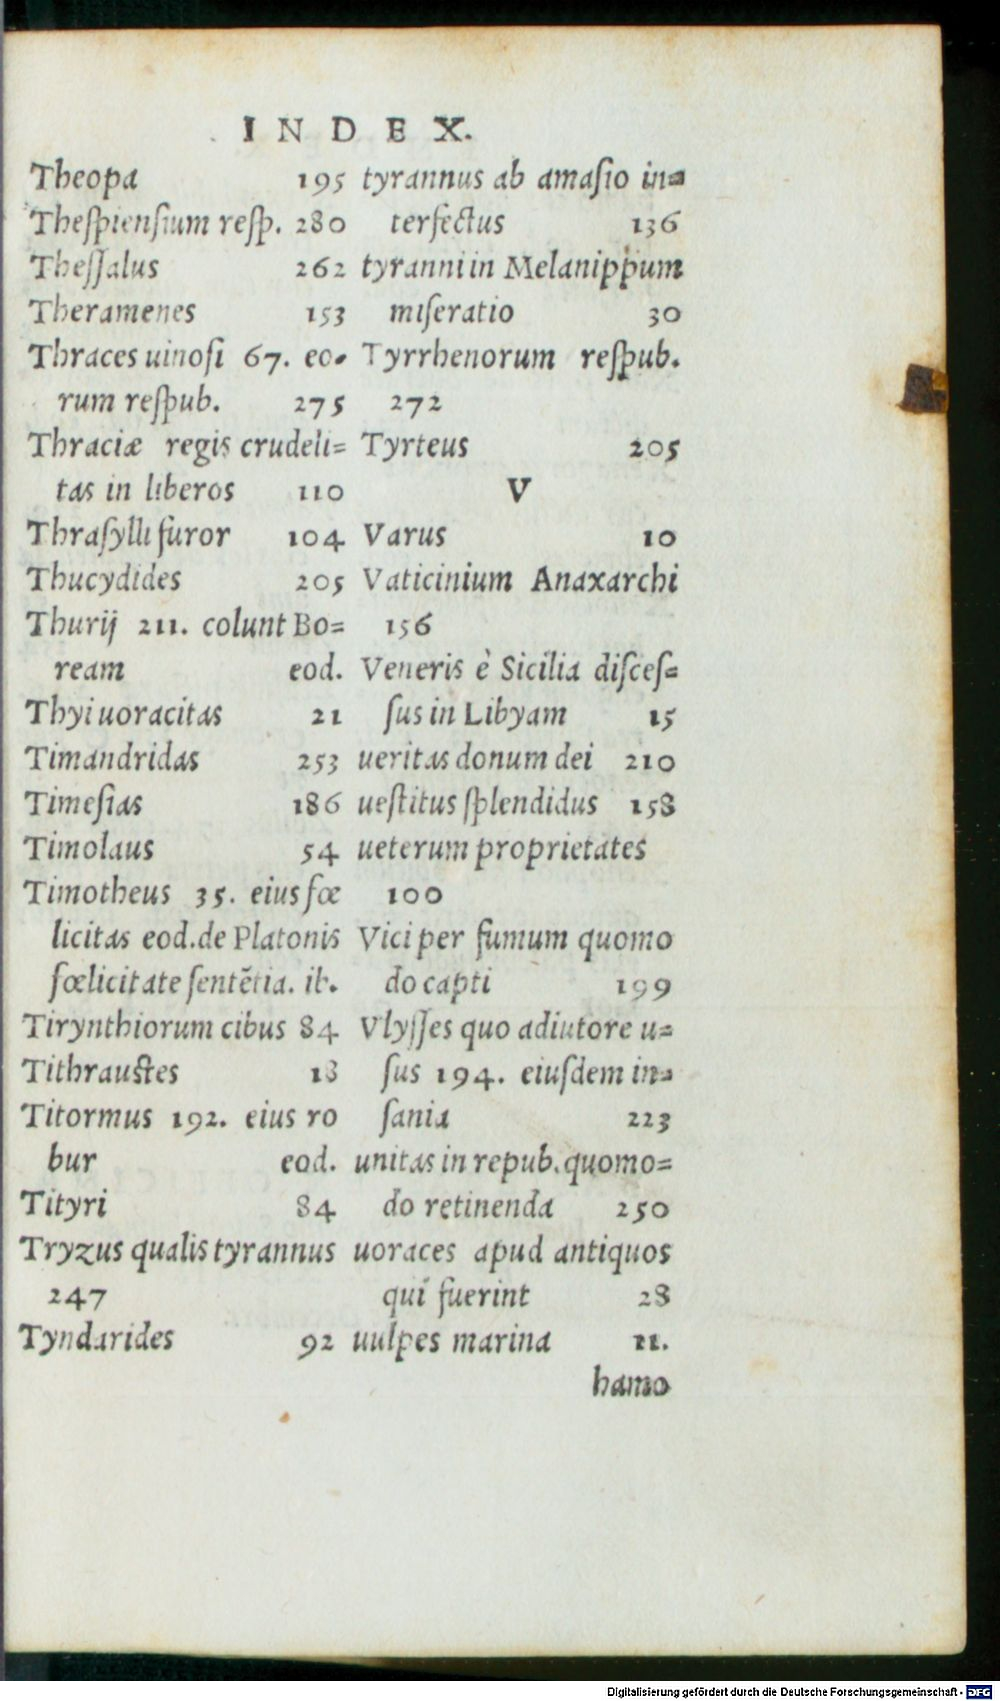 INDEX.
Theopa 195
Theſpienſium reſp. 280
Theſſalus 262
Theramenes 153
Thraces uinoſi 67. eo-
rum reſpub. 275
Thraciæ regis crudeli=
tas in liberos 110
Thraſylli furor 104
Thucydides 205
Thurij 211. colunt Bo=
ream eod.
Thyi uoracitas 21
Timandridas 253
Timeſias 186
Timolaus 54
Timotheus 35. eius fœ
licitas eod. de Platonis
fœlicitate ſentẽtia. ib.
Tirynthiorum cibus 84
Tithrauſtes 18
Titormus 192. eius ro
bur eod.
Tityri 84
Tryzus qualis tyrannus
247
Tyndarides 92
tyrannus ab amaſio in=
terfectus 136
tyranni in Melanippum
miſeratio 30
Tyrrhenorum reſpub.
272
Tyrteus 205
V
Varus 10
Vaticinium Anaxarchi
156
Veneris è Sicilia diſceſ=
ſus in Libyam 15
ueritas donum dei 210
ueſtitus ſplendidus 158
ueterum proprietates
100
Vici per fumum quomo
do capti 199
Vlyſſes quo adiutore u=
ſus 194. eiuſdem in=
ſania 223
unitas in repub. quomo=
do retinenda 250
uoraces apud antiquos
qui fuerint 28
uulpes marina 11.
hamo
Digitalisierung gefördert durch die Deutsche Forschungsgemeinschaft - DFG